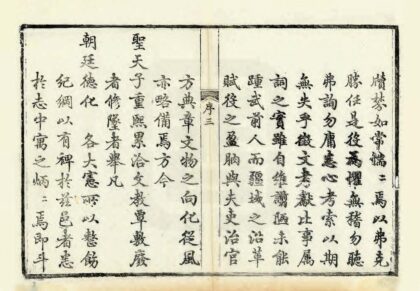 牘棼如常惴〻焉以弗克
勝任是役為懼無稽勿聽
弗詢勿庸悉心考索以期
無失乎徵文考獻比事屬
詞之實雖自維譾陋未能
踵武前人而疆域之沿革
賦役之盈朒與夫吏治官
序三
方典章文物之向化從風
亦略備焉方今
聖天子重熙累洽文教覃敷廢
者修墜者舉凡
朝廷德化 各大憲所以整飭
紀綱以有裨於兹邑者悉
於志中寓之炳〻焉即斗